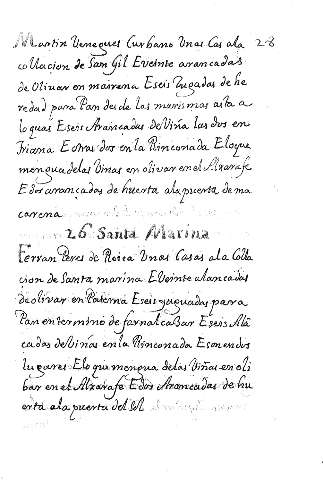 Martin Venegues Curbano Unas Casala 28
collacion de San Gil E veinte arancadas
de Olivar en mairena E seis Yugadas de he
redad para Pan desde las marismas asta a
loquas E seis Arancadas de Viña las dos en
triana E otras dos en la Rinconada Eloque
mengua de las Viñas en olivar en el Alxarafe
E dos arancadas de huerta ala puerta de ma
carena
26 Santa Marina
Ferran Peres de Unas Casas ala Colla
cion de Santa marina E Veinte alancadas
de olivar en Paterna E seis yuguadas para
Pan en termino de farnalcasar E seis Ala
cadas de Viñas en la Rinconada E son en dos
lugares Elo que mengua de las Viñas en oli
bar en el Alxarafe E dos Arancadas de hu
erta ala puerta del sol